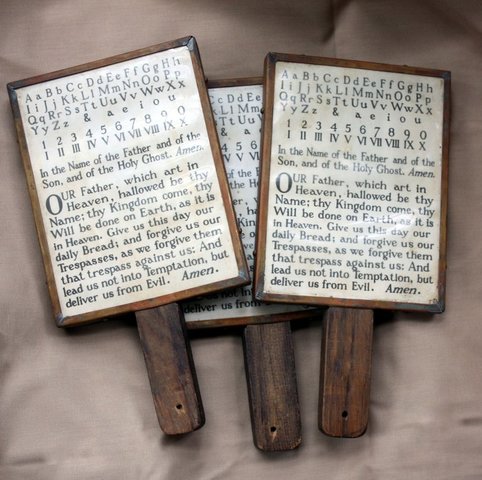 Aa Bb Cc Dd Ee Ff Gg Hh
Ii Jj Kk Ll Mm Nn Oo Pp
Qq Rr Ss Tt Uu Vv Ww Xx
Yy Zz & a e i o u
1 2 3 4 5 6 7 8 9 0
I II III IV V VI VII VIII IX X
In the Name of the Father and of the
Son, and of the Holy Ghost. Amen.
OUR Father, which art in
Heaven, hallowed be thy
Name; thy Kingdom come, thy
Will be done on Earth, as it is
in Heaven. Give us this day our
daily Bread; and forgive us our
Trespasses, as we forgive them
that trespass against us: And
lead us not into Temptation, but
deliver us from Evil. Amen.
Aa Bb Cc Dd Ee Ff Gg Hh
Ii Jj Kk Ll Mm Nn Oo Pp
Qq Rr Ss Tt Uu Vv Ww Xx
Yy Zz & a e i o u
1 2 3 4 5 6 7 8 9 0
I II III IV V VI VII VIII IX X
In the Name of the Father and of the
Son, and of the Holy Ghost. Amen.
OUR Father, which art in
Heaven, hallowed be thy
Name; thy Kingdom come, thy
Will be done on Earth, as it is
in Heaven. Give us this day our
daily Bread; and forgive us our
Trespasses, as we forgive them
that trespass against us: And
lead us not into Temptation, but
deliver us from Evil. Amen.